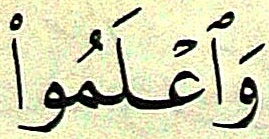 وَٱعْلَمُوا۟